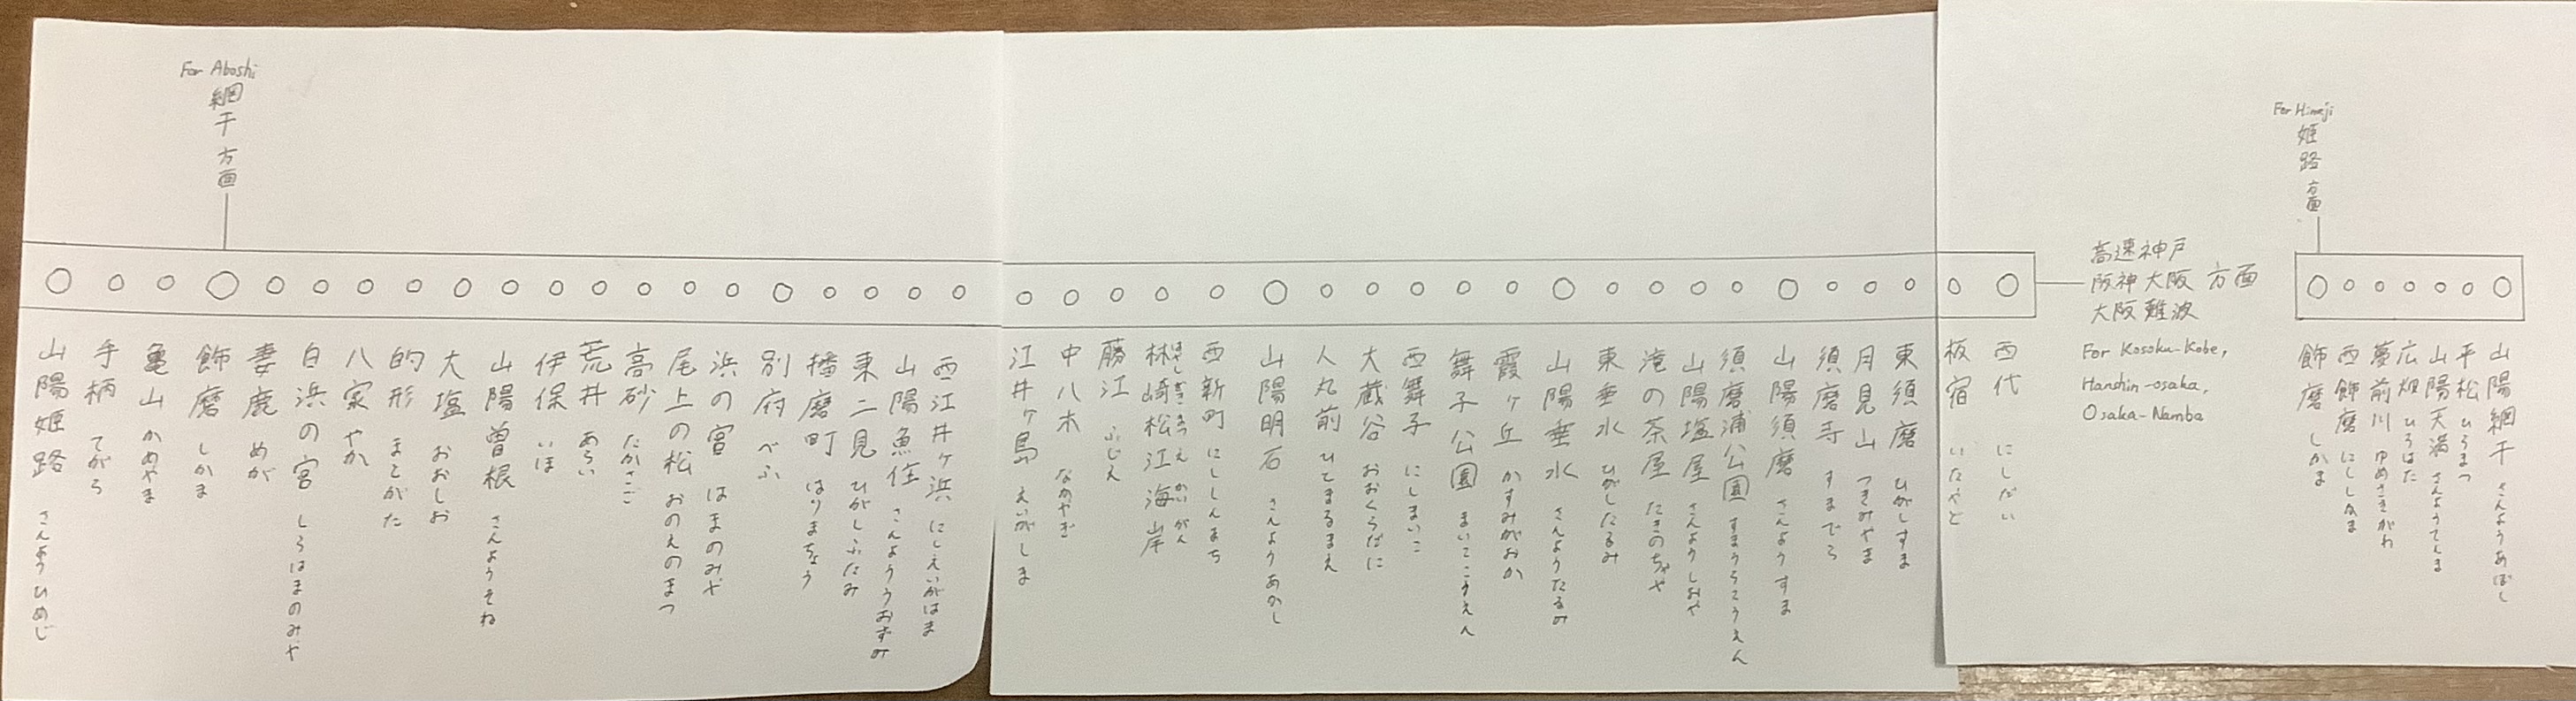 For Aboshi
網干方面
山陽姫路 さんようひめじ
手柄 てがら
亀山 かめやま
飾磨 しかま
妻鹿 めが
白浜の宮 しらはまのみや
八家 やか
的形 まとがた
大塩 おおしお
山陽曽根 さんようそね
伊保 いほ
荒井 あらい
高砂 たかさご
尾上の松 おのえのまつ
浜の宮 はまのみや
別府 べふ
播磨町 はりまちょう
東二見 ひがしふたみ
山陽魚住 さんよううおずみ
西江井ヶ浜 にしえいがはま
江井ヶ島 えいがしま
中八木 なかやぎ
藤江 ふじえ
林崎松江海岸 はやしざきまつえかいがん
西新町 にししんまち
山陽明石 さんようあかし
人丸前 ひとまるまえ
大蔵谷 おおくらだに
西舞子 にしまいこ
舞子公園 まいここうえん
霞ヶ丘 かすみがおか
山陽垂水 さんようたるみ
東垂水 ひがしたるみ
滝の茶屋 たきのちゃや
山陽塩屋 さんようしおや
須磨浦公園 すまうらこうえん
山陽須磨 さんようすま
須磨寺 すまでら
月見山 つきみやま
東須磨 ひがしすま
板宿 いたやど
西代 にしだい
高速神戸
阪神大阪 方面
大阪難波
For Kosoku-Kobe,
Hanshin-osaka,
Osaka-Namba
For Himeji
姫路方面
飾磨 しかま
西飾磨 にししかま
夢前川 ゆめさきがわ
広畑 ひろはた
山陽天満 さんようてんま
平松 ひらまつ
山陽網干 さんようあぼし